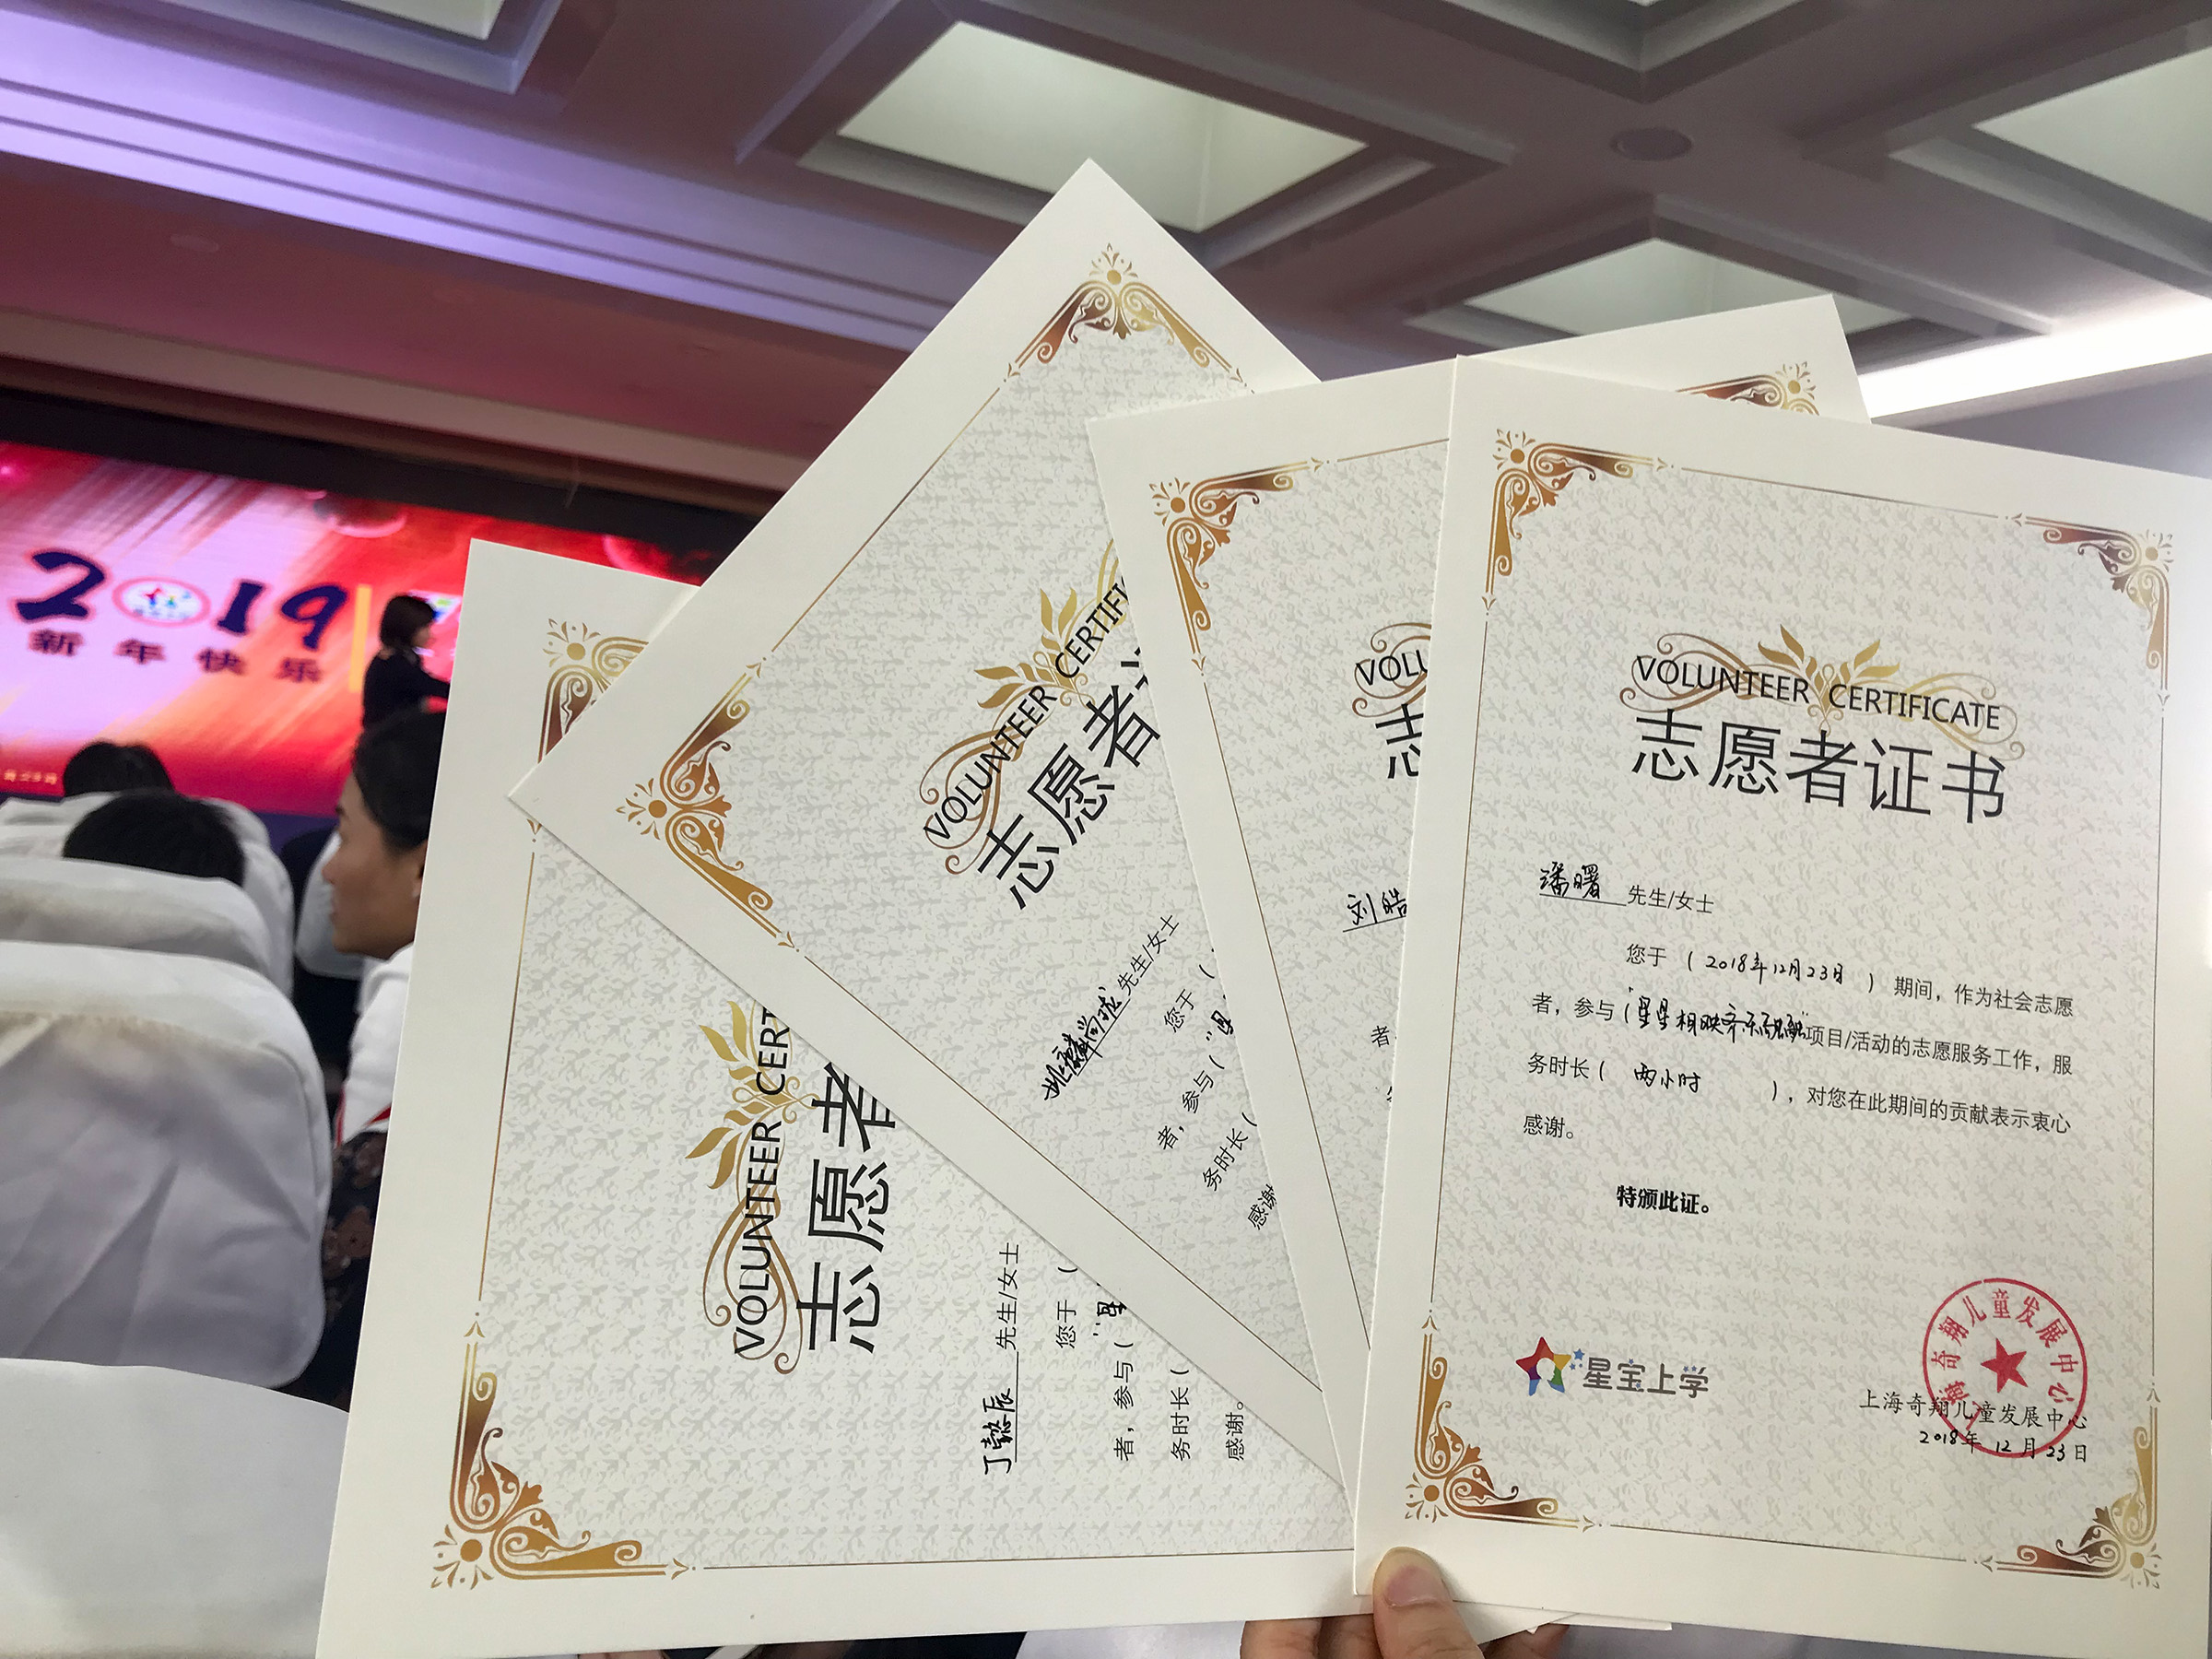 2019
新年快乐
VOLUNTEER CERT
志愿者
丁懿辰 先生/女士
您于（
者，参与（“星
务时长（
感谢。
VOLUNTEER CERTIFI
志愿者
先生/女士
您于（
者，参与（“星
务时长（
感谢
VOLU
志
刘皓
者
VOLUNTEER CERTIFICATE
志愿者证书
潘曙 先生/女士
您于（2018年12月23日）期间，作为社会志愿
者，参与（“星星相映 项目/活动的志愿服务工作，服
务时长（两小时），对您在此期间的贡献表示衷心
感谢。
特颁此证。
星宝上学
上海奇翔儿童发展中心
上海奇翔儿童发展中心
2018年12月23日